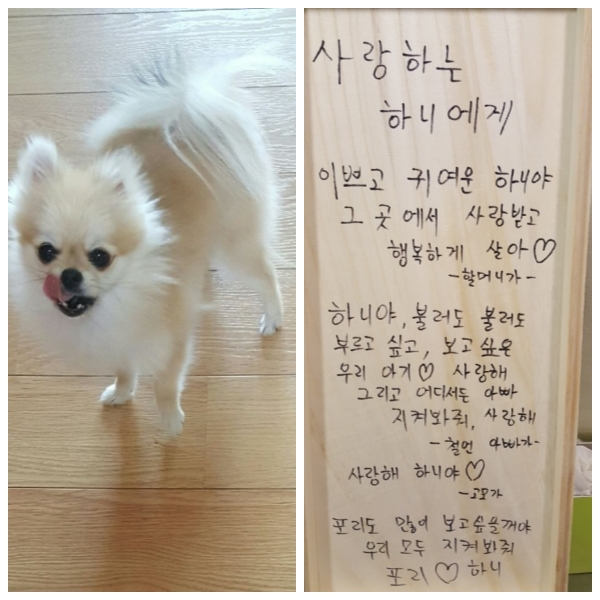 사랑하는
하니에게
이쁘고 귀여운 하니야
그 곳에서 사랑받고
행복하게 살아♡
-할머니가-
하니야, 불러도 불러도
부르고 싶고, 보고싶은
우리 아기♡ 사랑해
그리고 어디서든 아빠
지켜봐줘, 사랑해
- 철없 아빠가-
사랑해 하니야♡
-고모가
포리도 많이 보고싶을꺼야
우리 모두 지켜봐줘
포리♡하니